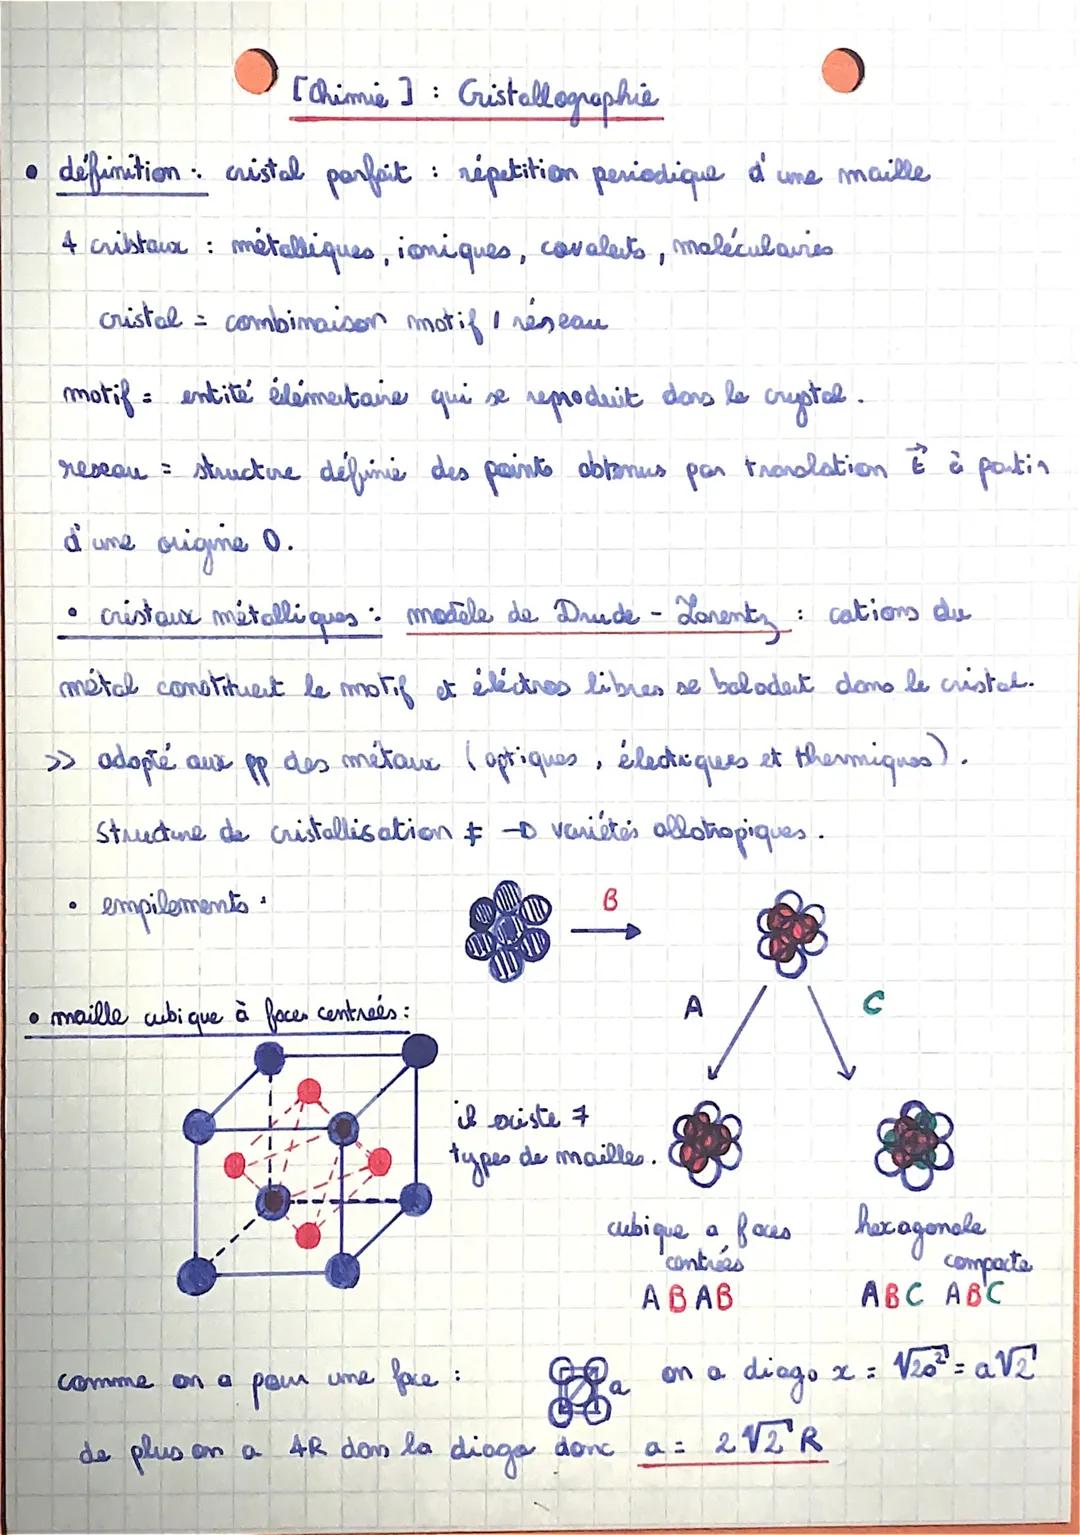 [Chimie] : Cristallographie
• définition : cristal parfait : répetition periodique d'une maille
4 cristaux : métalliques, ioniques, covalents, moléculaires
cristal = combinaison motif / réseau
motif = entité élémentaire qui se reproduit dans le crystal.
reseau = structure définie des points obtenus par translation t⃗ à partir
d'une origine O.
• cristaux métalliques : modèle de Drude - Lorentz : cations du
métal constituent le motif et éléctrons libres se baladent dans le cristal.
>> adapté aux pp des métaux (optiques, électriques et thermiques).
Structure de cristallisation ≠ → variétés allotropiques.
• empilements :
B
A
C
• maille cubique à faces centrées :
il existe 7
types de mailles.
cubique a faces
centrées
ABAB
hexagonale
compacte
ABC ABC
comme on a pour une face :
a
on a diago x = √2a² = a√2
de plus on a 4R dans la diago donc a = 2√2 R